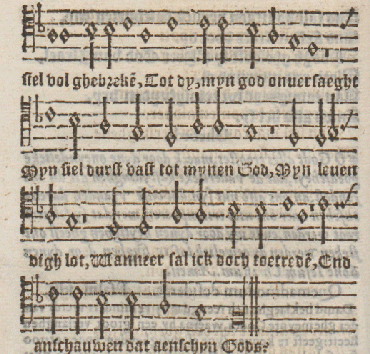 siel vol ghebrekē, Tot dy, myn god onuersaeght
Myn siel durst vast tot mynen God, Myn leuen
digh lot, Wanneer sal ick doch toetredē, End
anschauwen dat aenschyn Gods: